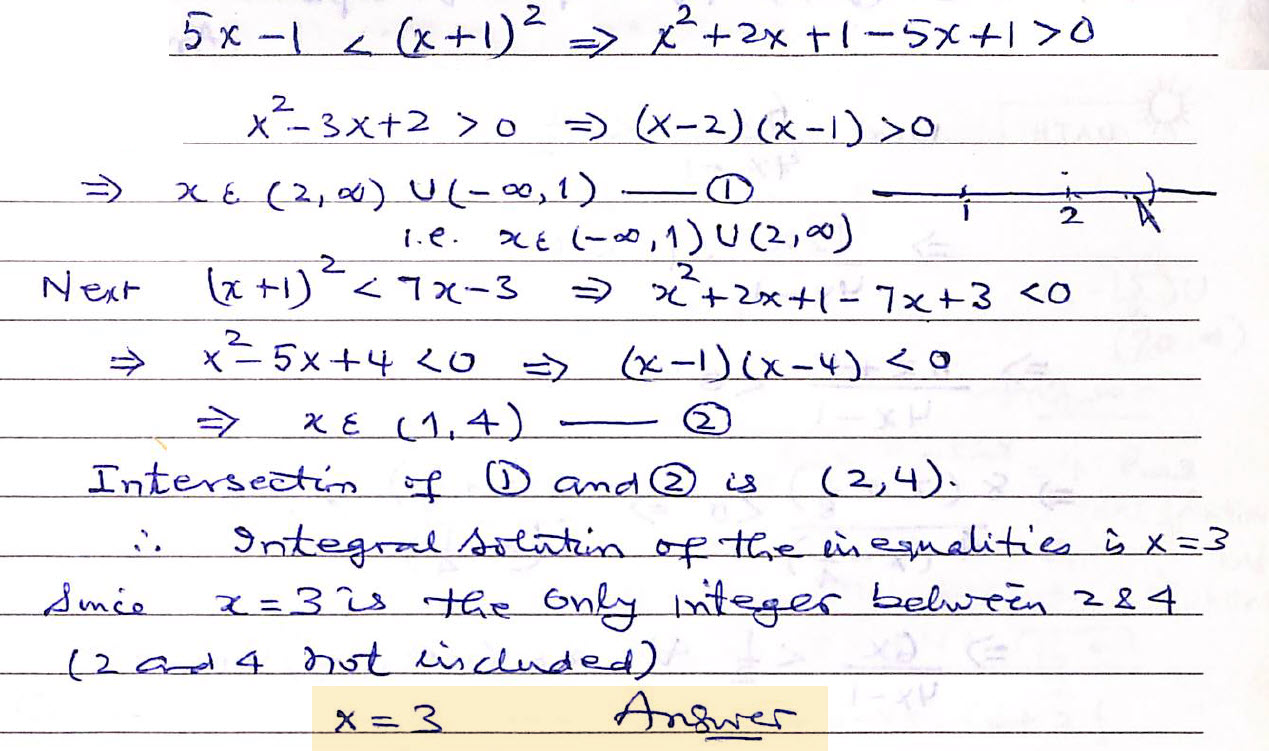 5x - 1 < (x+1)² ⇒ x² + 2x + 1 - 5x + 1 > 0
x² - 3x + 2 > 0 ⇒ (x-2)(x-1) > 0
⇒ x ε (2, ∞) ∪ (-∞, 1) — ①
1 2
i.e. x ε (-∞, 1) ∪ (2, ∞)
Next (x+1)² < 7x - 3 ⇒ x² + 2x + 1 - 7x + 3 < 0
⇒ x² - 5x + 4 < 0 ⇒ (x-1)(x-4) < 0
⇒ x ε (1, 4) — ②
Intersection of ① and ② is (2,4).
∴ Integral solution of the inequalities is x = 3
Since x = 3 is the only integer between 2 & 4
(2 and 4 not included)
x = 3 Answer